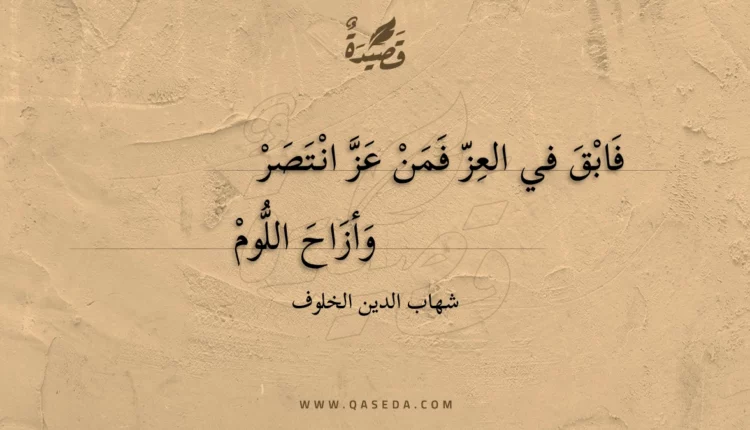 قَصِيدَةٌ
فَابْقَ في العِزّ فَمَنْ عَزَّ انْتَصَرْ
وَأزَاحَ اللُّومْ
شهاب الدين الخلوف
WWW.QASEDA.COM